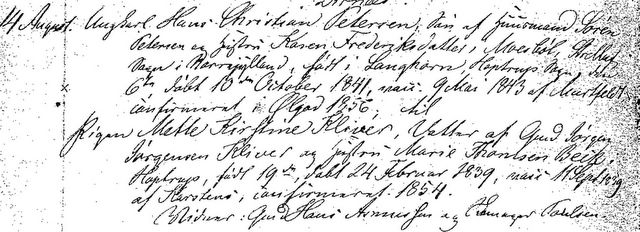 4 August. Ungkarl Hans Christian Petersen, Søn af Huusmand Søren
Petersen og Hustru Karen Frederiksdatter i Mosbøl,
Sogn i Nørrejylland, født i Langhorn, Hoptrup Sogn, den
6te, døbt 10de October 1841, vacc. 9 Mai 1843 af Martfeldt
confirmeret i Ølgod 1856, til
Pigen Mette Kirstine Kliver, Datter af Gmd Jørgen
Jørgensen Kliver og Hustru Marie Thomsen Beck i
Hoptrup, født 19de, døbt 24 Februar 1839, vacc 11 Sept 1839
af Karstens, confirmeret 1854.
Vidner: Gmd Hans Asmussen og